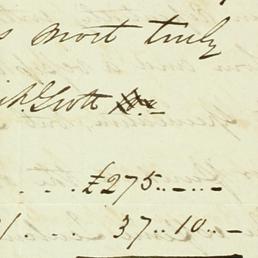 s most truly
Scott
. . . £275 .. - .. -
/ . . . 37 .. 10 .. -